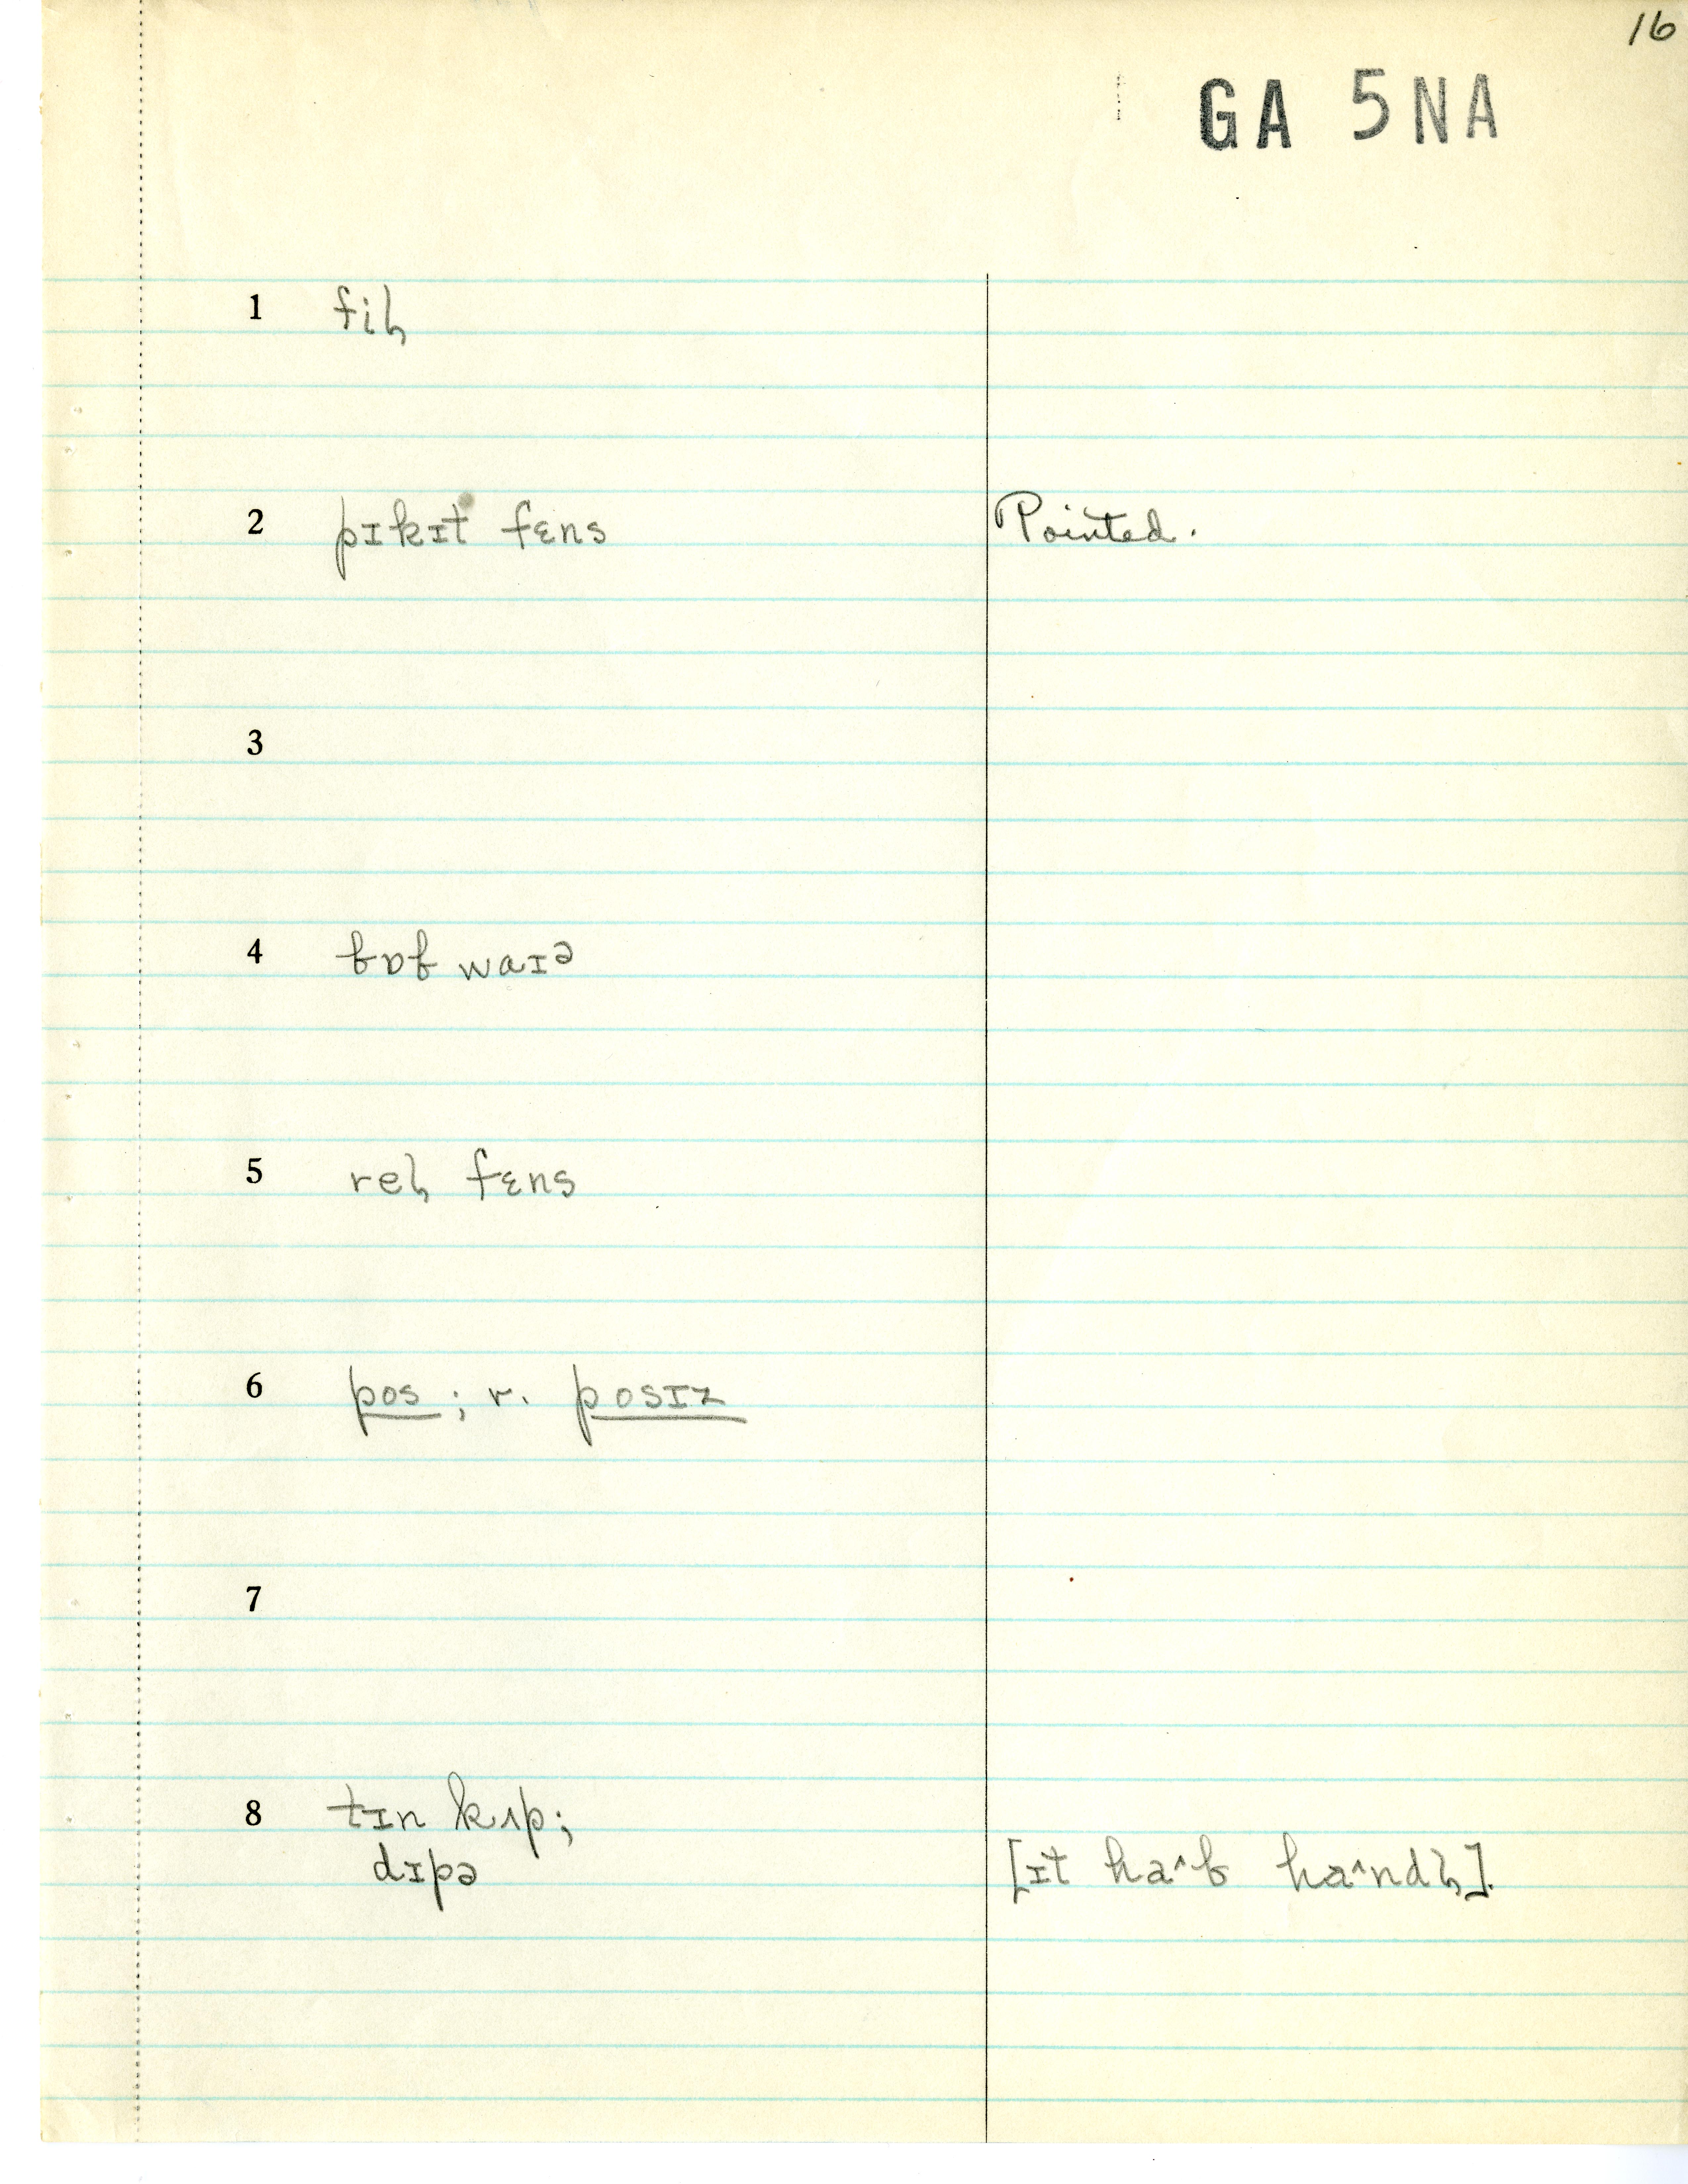 16
GA 5NA
1 fiɫ̩
2 pɪkɪt fɛns Pointed.
3
4 bɒb waɪə
5 reɫ̩ fɛns
6 pos ; r. posɪz
7
8 tɪn kʌp;
dɪpə [ɪt ha^b ha^ndl̩].